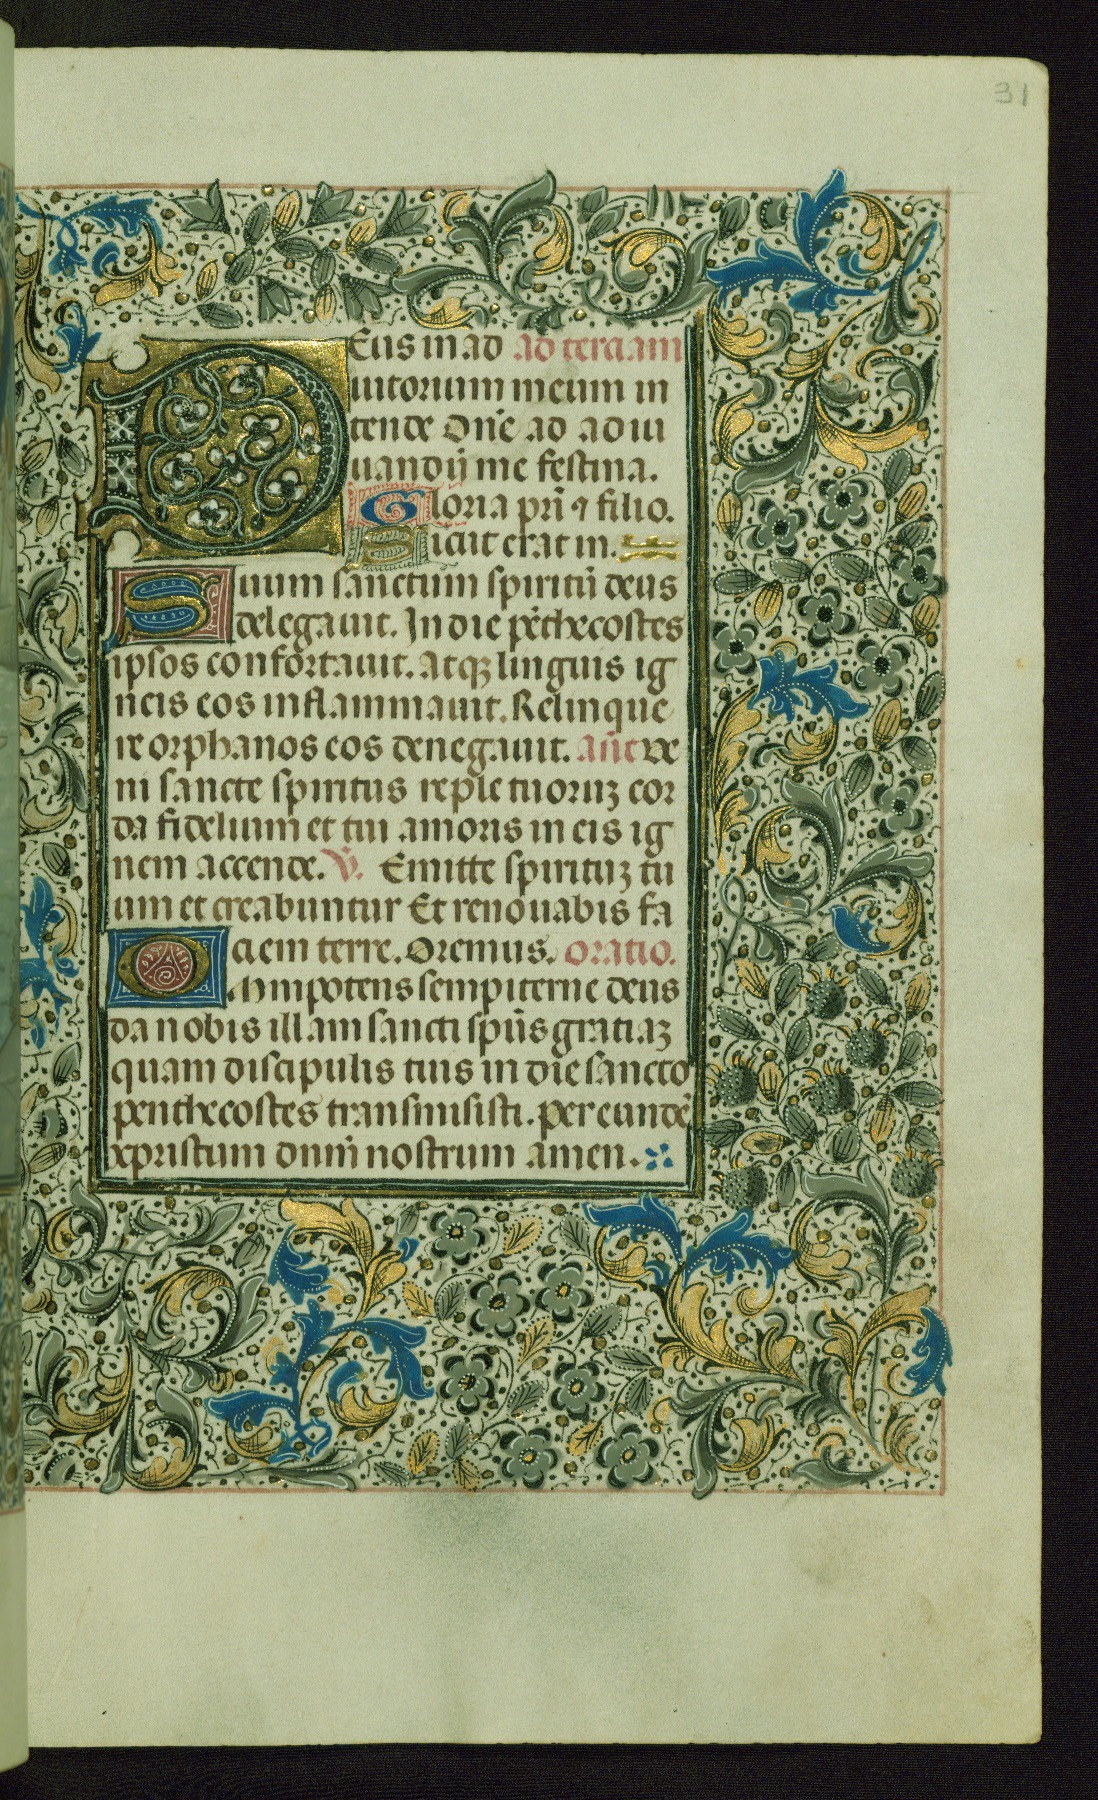 31
Eus in ad ad terciam
iutorium meum in
tende dn̄e ad adiu
uandū me festina.
Gloria pr̄i ⁊ filio.
Sicut erat in.
Suum sanctum spiritū deus
delegauit. In die pēthecostes
ipsos confortauit. atqꝫ linguis ig
neis eos inflammauit. Relinque
re orphanos eos denegauit. an̄e ve
ni sancte spiritus reple tuoruꝫ cor
da fidelium et tui amoris in eis ig
nem accende. V̄. Emitte spirituꝫ tu
um et creabuntur Et renouabis fa
ciem terre. Oremus. oratio.
Omnipotens sempiterne deus
da nobis illam sancti spūs gratiaꝫ
quam discipulis tuis in die sancto
penthecostes transmisisti. per eundē
xpristum dnm̄ nostrum amen.